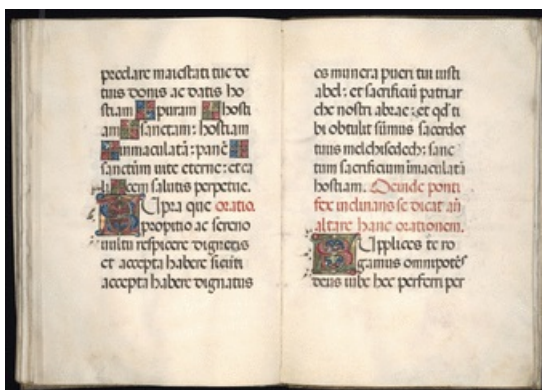 preclare maiestati tue de
tuis donis ac datis ho
stiam puram hosti
am sanctam: hostiam
immaculatā: panē
sanctum uite eterne: et ca
licem salutis perpetue.
Supra que oratio.
propitio ac sereno
uultu respicere digneris
et accepta habere sicuti
accepta habere dignatus
es munera pueri tui iusti
abel: et sacrificiū patriar
che nostri abrae: et qd ti
bi obtulit sūmus sacerdos
tuus melchisedech: sanc
tum sacrificium imaculatā
hostiam. Deinde ponti
fex inclinans se dicat añ
altare hanc orationem.
Supplices te ro
gamus omnipotēs
deus iube hec perferri per